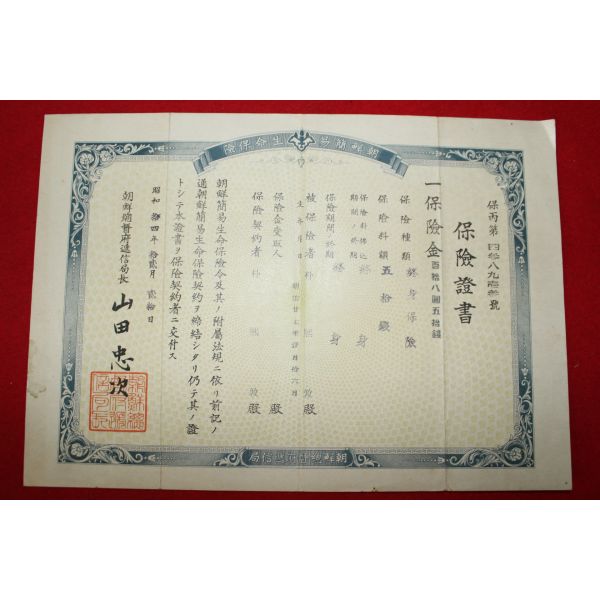 朝鮮簡易生命保險
保丙第四參八九壱參號
保險證書
一保險金百拾八圓五拾錢
保險種類終身保險
保險料額五拾錢
保險料拂込期間ノ終期 終身
保險期間ノ終期 終身
被保險者 朴熙敦殿
生年月日 明治廿七年 月拾六日
保險金受取人 殿
保險契約者 朴熙敦殿
朝鮮簡易生命保險令及其ノ附屬法規ニ依リ前記ノ
通朝鮮簡易生命保險契約ヲ締結シタリ仍テ其ノ證
トシテ本證書ヲ保險契約者ニ交付ス
昭和拾四年拾貳月貳拾日
朝鮮總督府遞信局長 山田忠次
朝鮮總督府遞信局